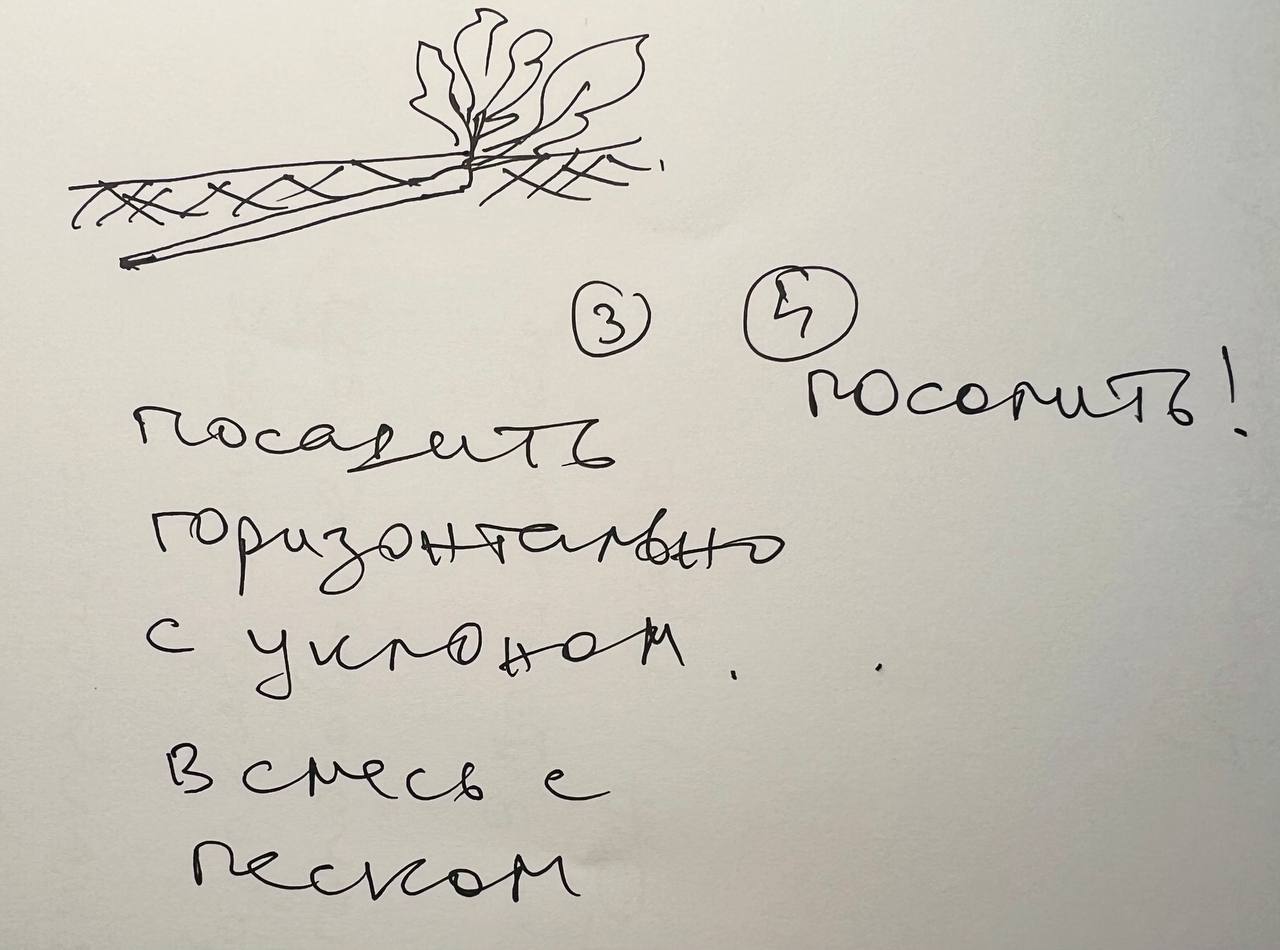 3
посадить
горизонтально
с уклоном.
В смесь с
песком
4
посолить!